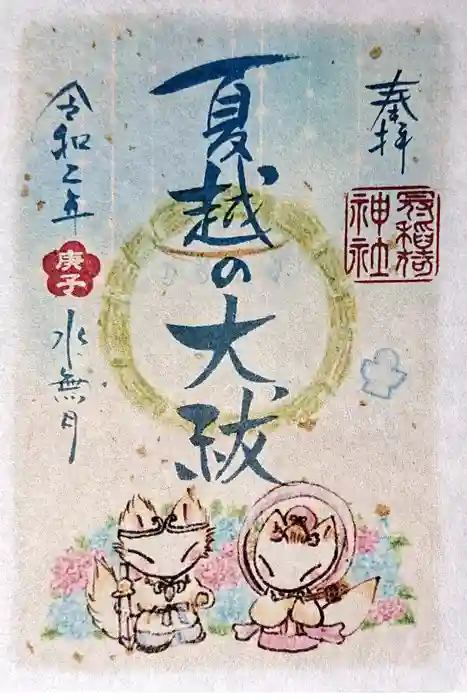 奉拝
稲荷
神社
夏越の大祓
令和二年
庚子
水無月